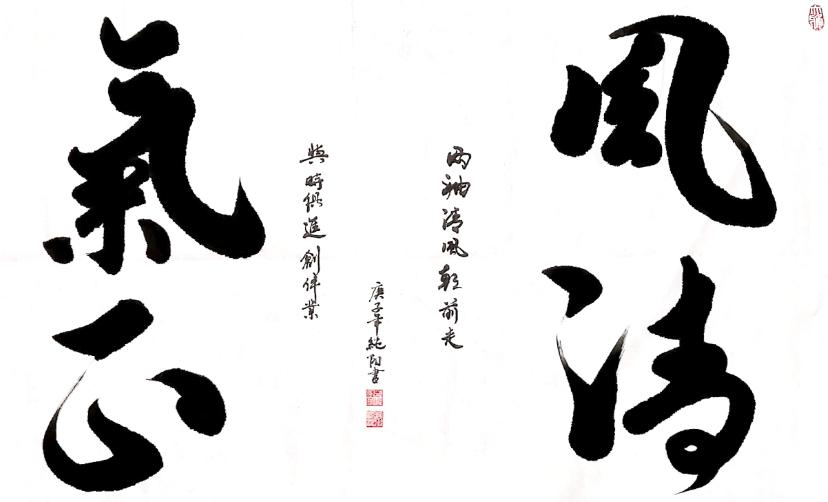 風清
两袖清風朝前走
庚子年純書
與時俱進創偉業
氣正